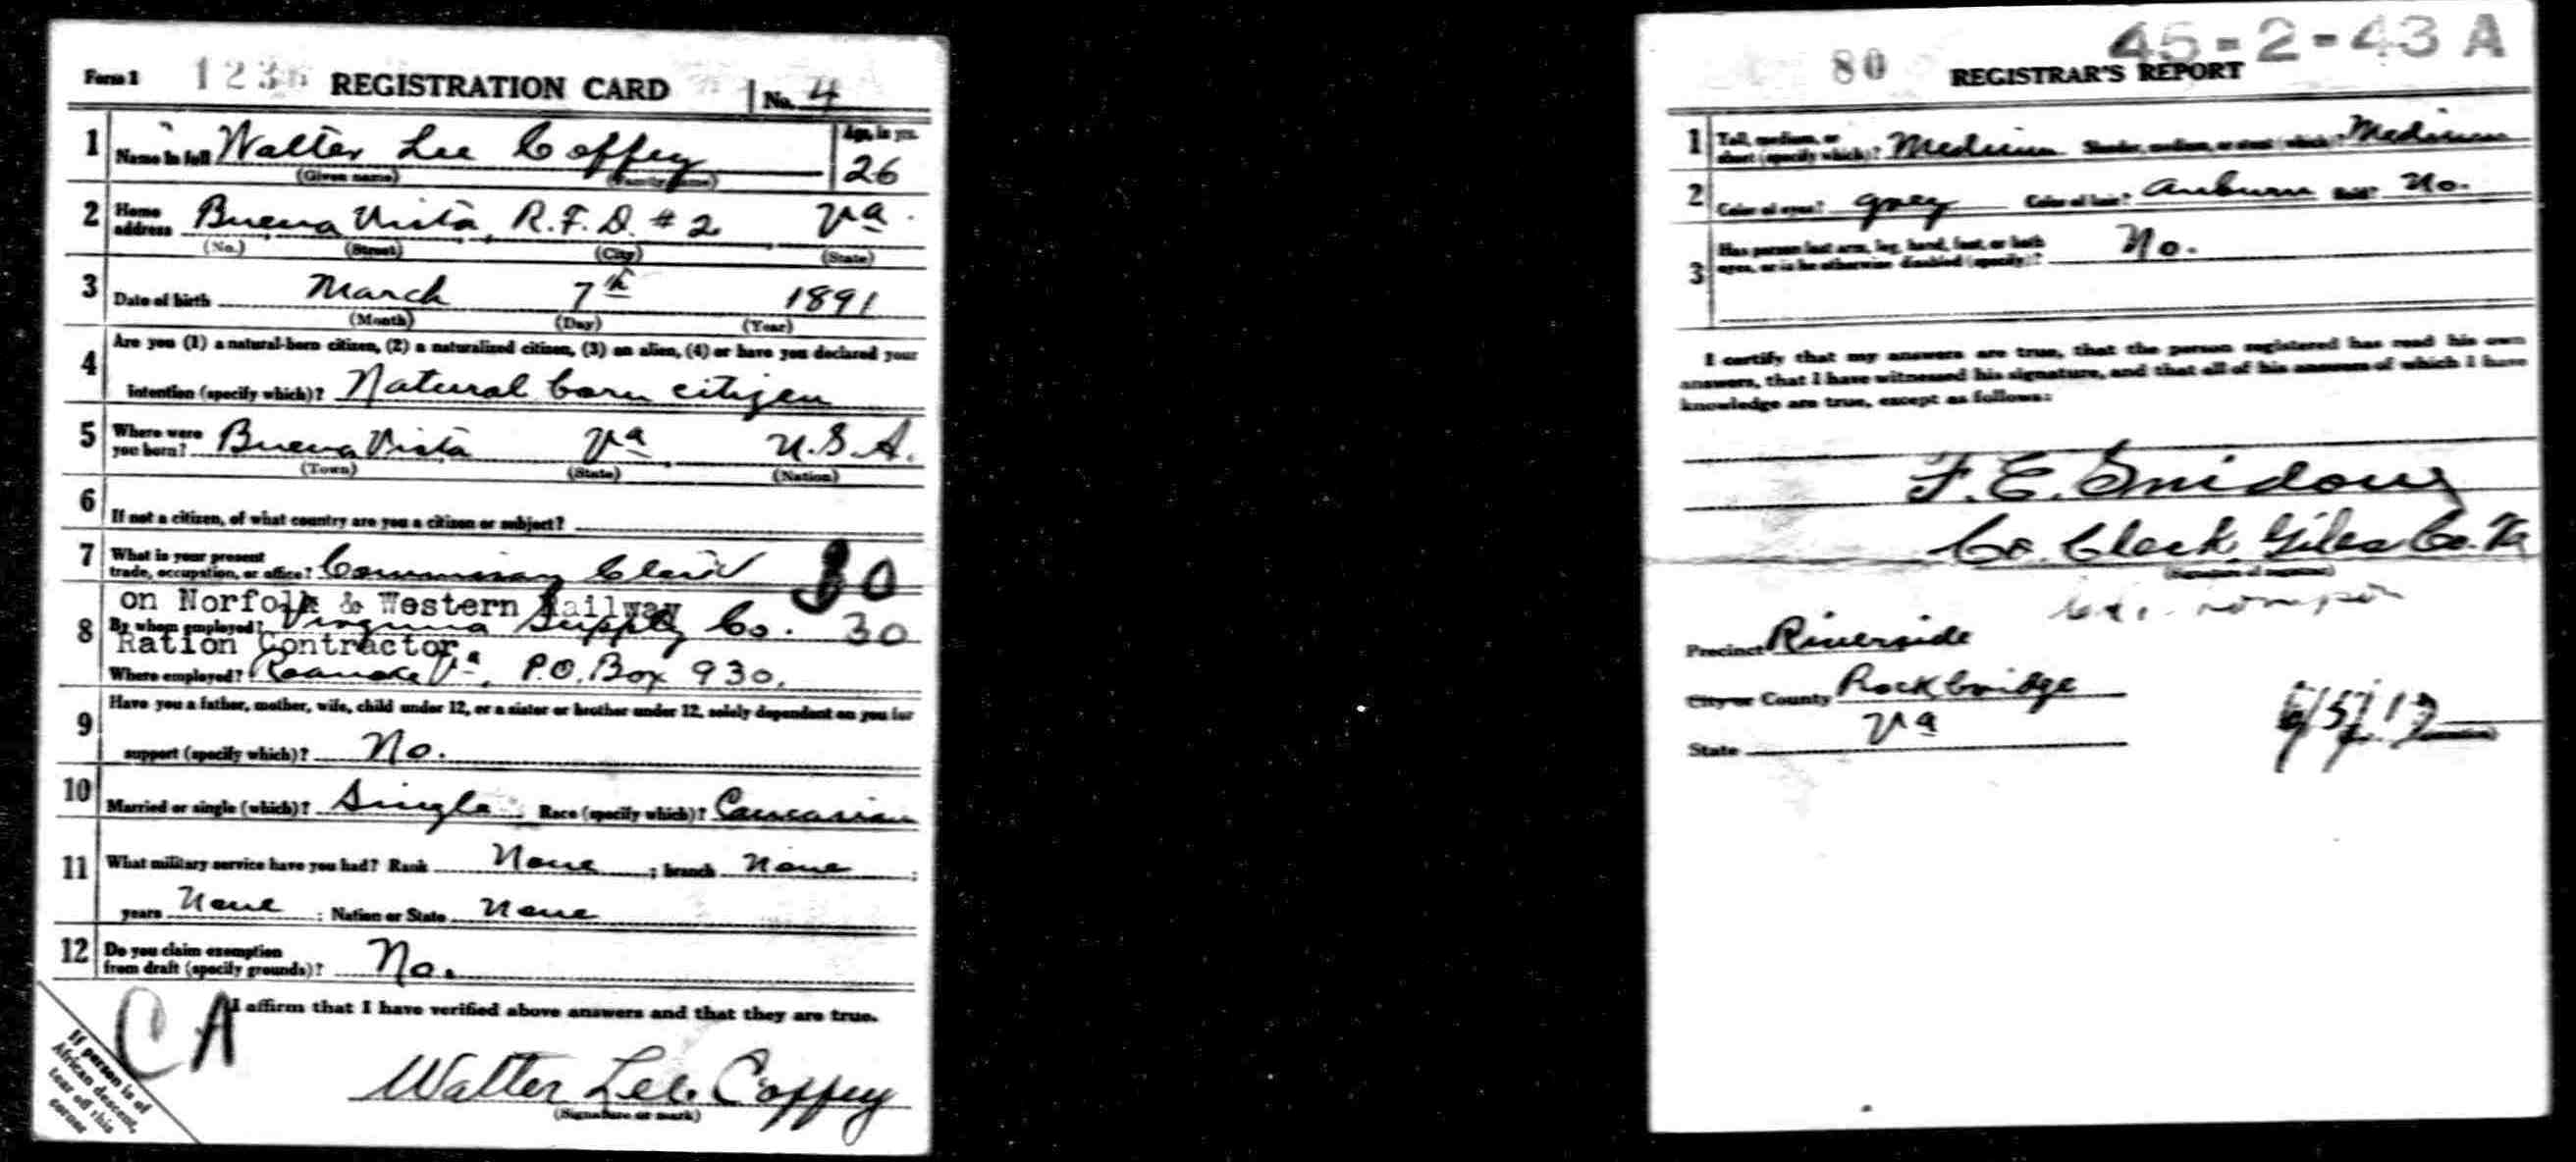 Form 1 REGISTRATION CARD No. 4
1 Name in full Walter Lee Coffey Age, in yrs. 26
(Given name) (Family name)
2 Home address Buena Vista, R.F.D. # 2 Va.
(No.) (Street) (City) (State)
3 Date of birth March 7th 1891
(Month) (Day) (Year)
4 Are you (1) a natural-born citizen, (2) a naturalized citizen, (3) an alien, (4) or have you declared your
intention (specify which)? Natural born citizen
5 Where were you born? Buena Vista Va. U.S.A.
(Town) (State) (Nation)
6 If not a citizen, of what country are you a citizen or subject?
7 What is your present
trade, occupation, or office? Commissary Clerk 30
on Norfolk & Western Railway
8 By whom employed? Virginia Supply Co. 30
Ration Contractor
Where employed? Roanoke Va, P.O. Box 930.
9 Have you a father, mother, wife, child under 12, or a sister or brother under 12, solely dependent on you for
support (specify which)? No.
10 Married or single (which)? Single Race (specify which)? Caucasian
11 What military service have you had? Rank None ; branch None ;
years None ; Nation or State None
12 Do you claim exemption
from draft (specify grounds)? No.
I affirm that I have verified above answers and that they are true.
CA
Walter Lee Coffey
(Signature or mark)
If person is of
African descent,
tear off this
corner
45-2-43 A
80 REGISTRAR'S REPORT
1 Tall, medium, or
short (specify which)? Medium Slender, medium, or stout (which)? Medium
2 Color of eyes? grey Color of hair? Auburn Bald? No.
3 Has person lost arm, leg, hand, foot, or both
eyes, or is he otherwise disabled (specify)? No.
I certify that my answers are true, that the person registered has read his own
answers, that I have witnessed his signature, and that all of his answers of which I have
knowledge are true, except as follows:
F. E. Snidow
Co. Clerk Giles Co. Va
(Signature of registrar)
Precinct Riverside
City or County Rockbridge
State Va